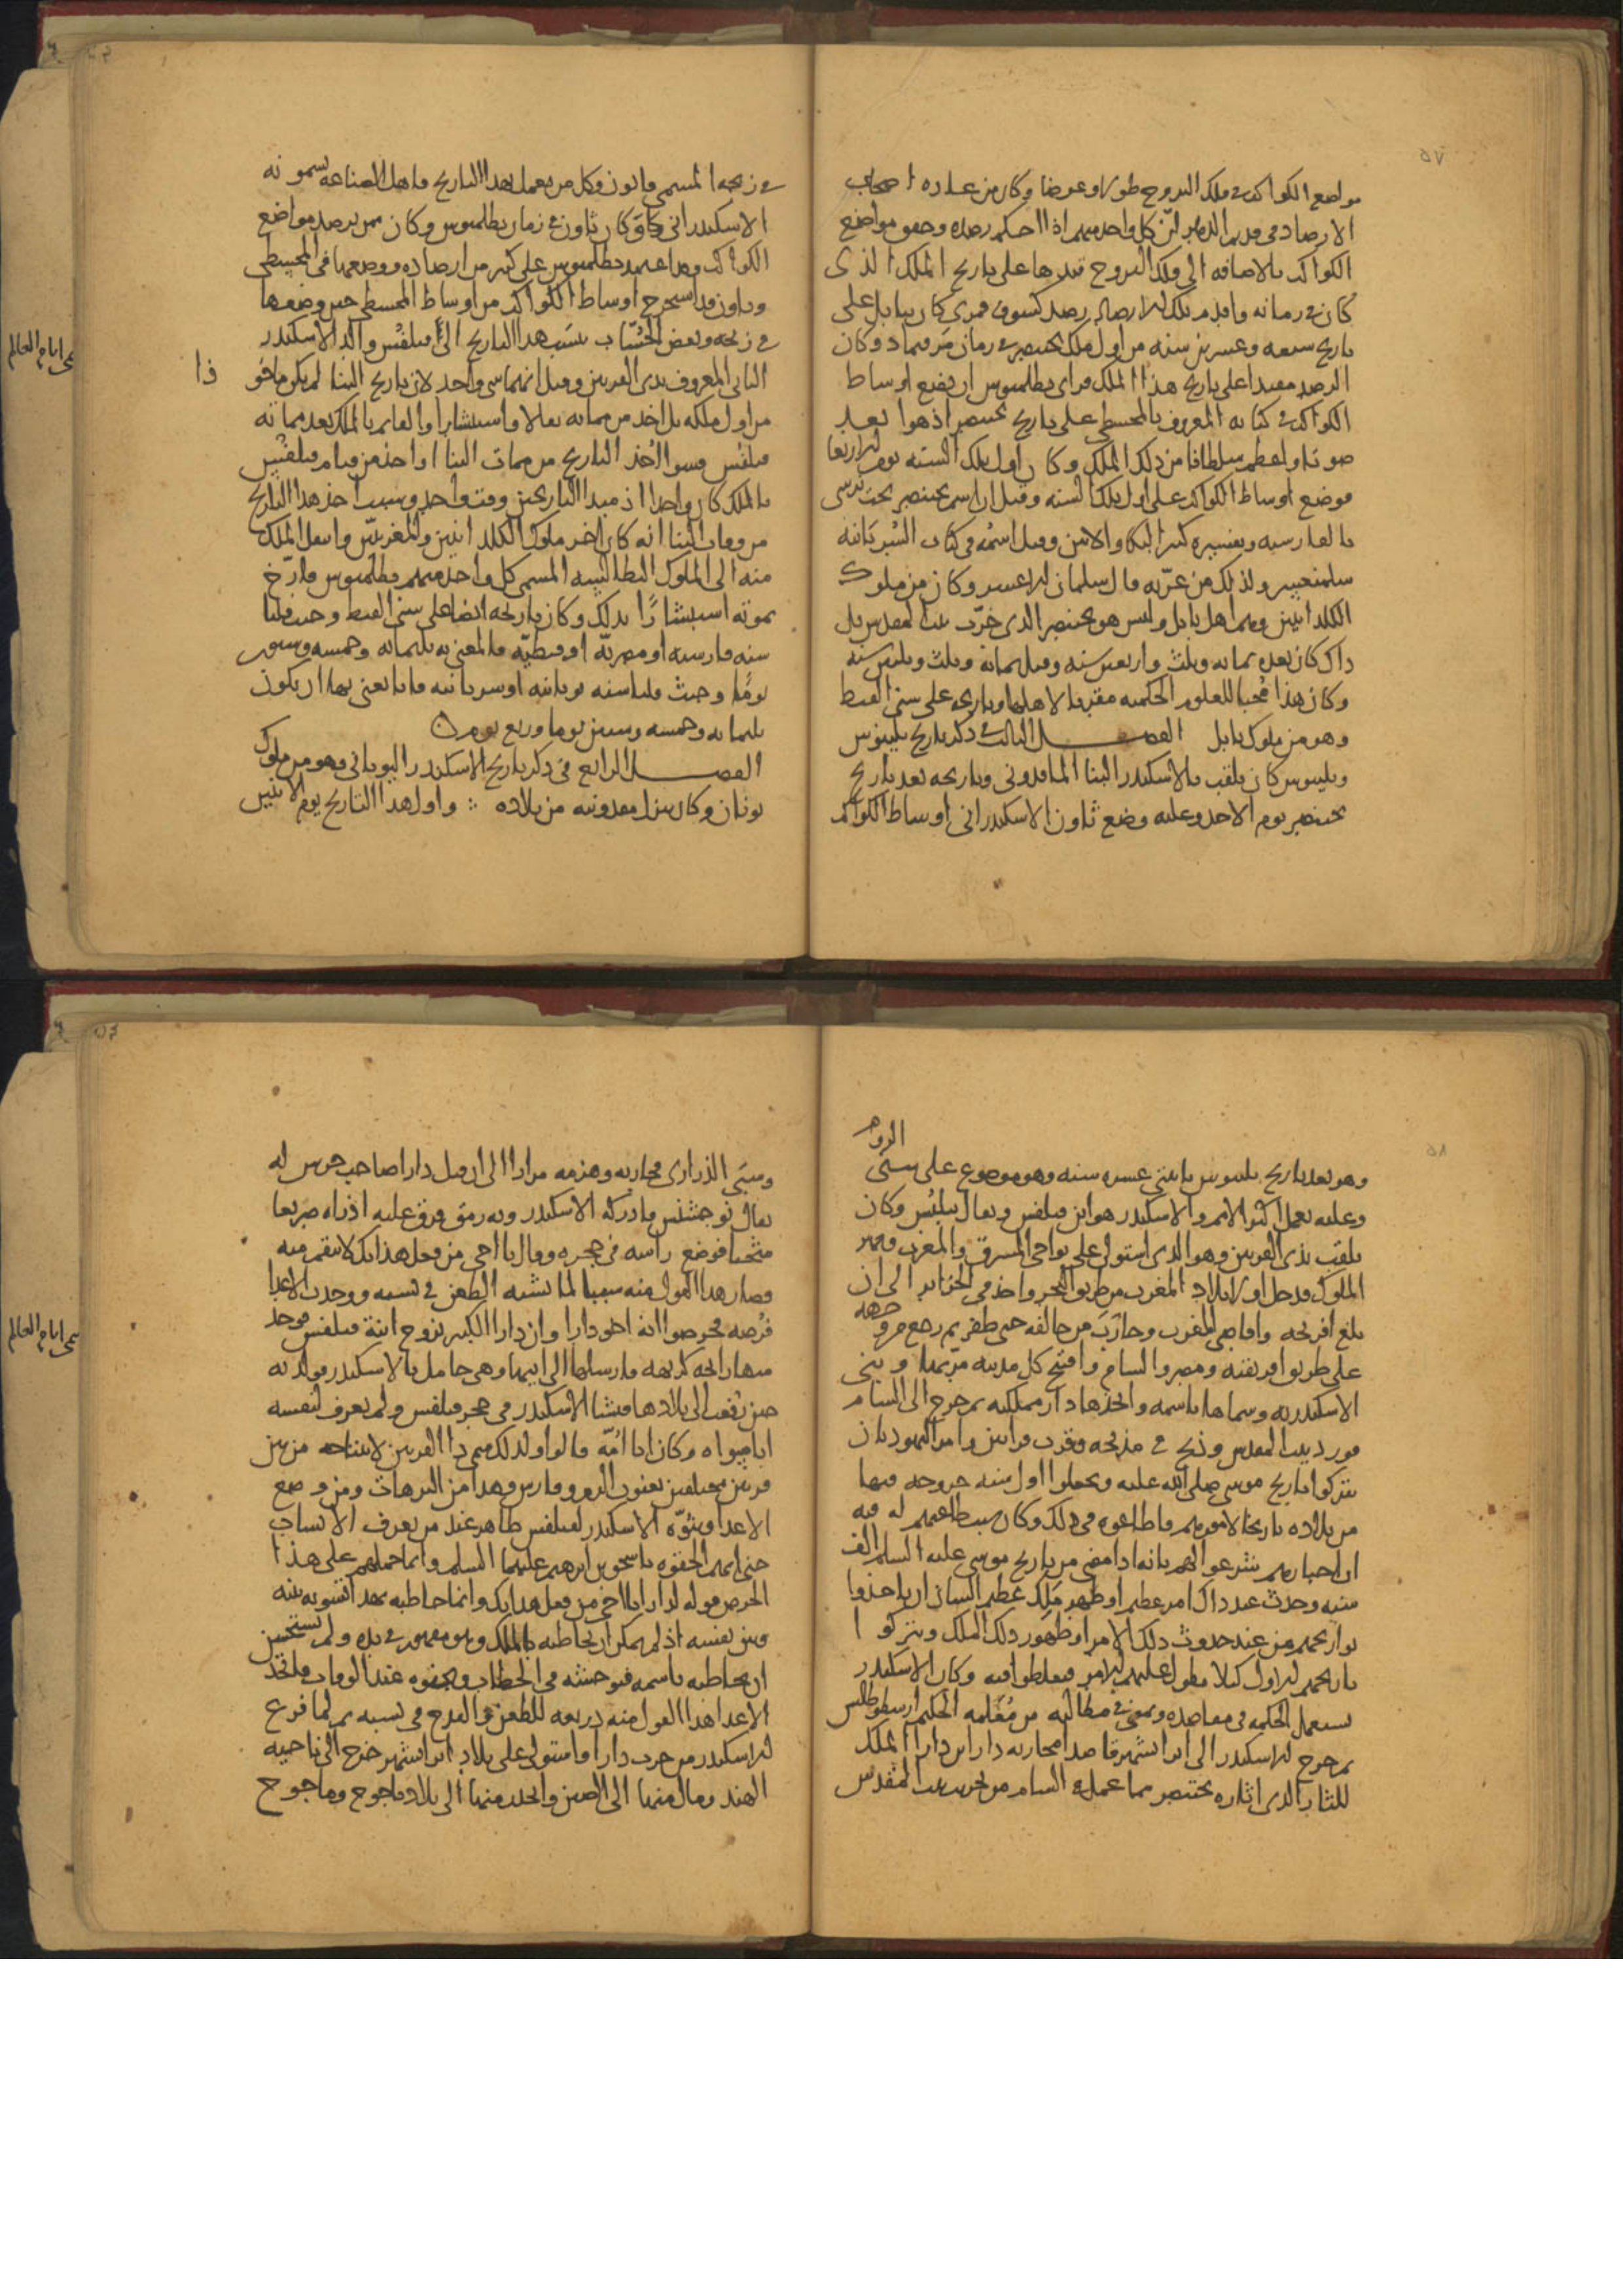 ٥٧
مواضع الكواكب في فلك البروج طولا وعرضا وكان من عادة اصحاب
الارصاد في قديم الدهر ان كل واحد منهم اذا احكم رصده وحقق مواضع
الكواكب بالاضافة الى فلك البروج قيدها على تاريخ الملك الذي
كان في زمانه واقدم تلك الارصاد رصد كسوف قمري كان ببابل على
تاريخ سبعة وعشرين سنة من اول ملك بختنصر في زمان وكان
الرصد مقيدا على تاريخ هذا الملك فراى بطلميوس ان يضع اوساط
الكواكب في كتابه المعروف بالمجسطي على تاريخ بختنصر اذ هو ابعد
صوتا واعظم سلطانا من ذلك الملك وكان اول تلك السنة يوم الاربعا
فوضع اوساط الكواكب على اول تلك السنة وقيل ان اسم بختنصر
بالفارسية وتفسيره كثير البكا والانين وقيل اسمه في كتاب السريانية
ولذلك من عزبه قال سلمان الاعسر وكان من ملوك
الكلدانيين وهم اهل بابل وليس هو بختنصر الذي خرب بيت المقدس بل
ذاك كان بعده بماية وثلث واربعين سنة وقيل بماية وثلث وثلثين سنة
وكان هذا محبا للعلوم الحكمية مقربا لاهلها وتاريخه على سني القبط
وهو من ملوك بابل الفصل الثالث في ذكر تاريخ فيلبوس
وفيلبوس كان يلقب بالاسكندر البنا الماقدوني وتاريخه بعد تاريخ
بختنصر يوم الاحد وعليه وضع ثاون الاسكندراني اوساط الكواكب
في زيجه المسمى قانون وكل من يعمل بهذا التاريخ فاهل الصناعة يسمونه
الاسكندراني وكان ثاون في زمان بطلميوس وكان ممن يرصد مواضع
الكواكب وقد اعتمد بطلميوس على كثير من ارصاده ووضعها في المجسطي
وثاون قد استخرج اوساط الكواكب من اوساط المجسطي حين وضعها
في زيجه وبعض الحساب ينسب هذا التاريخ الى فيلفس والد الاسكندر
الثاني المعروف بذي القرنين وقيل انهما شي واحد لان تاريخ البنا لم يكن ماخو
ذا
من اول ملكه بل اخذ من مماته تفالا واستبشارا والقايم بالملك بعد مماته
فيلفس فسوا اخذ التاريخ من ممات البنا او اخذ من قيام فيلفس
بالملك كان واحدا اذ مبدا التاريخين وقت واحد وسبب اخذ هذا التاريخ
من وفات البنا انه كان اخر ملوك الكلدانيين والمغربيين وانتقل الملك
منه الى الملوك البطالسية المسمى كل واحد منهم بطلميوس فارخ
بموته استبشارا بذلك وكان تاريخه ايضا على سني القبط وحيث قلنا
سنة فارسية او مصرية او قبطية فالمعني به ثلثماية وخمسة وستون
يوما وحيث قلنا سنة يونانية او سريانية فانا نعني بها ان يكون
ثلثماية وخمسة وستين يوما وربع يوم
الفصل الرابع في ذكر تاريخ الاسكندر اليوناني وهو من ملوك
يونان وكان ينزل مقدونية من بلاده ۞ واول هذا التاريخ يوم الاثنين
على ايام العالم
٥٨
الروم
وهو بعد تاريخ فيلبوس باثنتي عشرة سنة وهو موضوع على سني
وعليه يعمل اكثر الامم والاسكندر هو ابن فيلفس ويقال فيلبس وكان
يلقب بذي القرنين وهو الذي استولى على نواحي المشرق والمغرب وقهر
الملوك فدخل اولا بلاد المغرب من طريق البحر واخذ في الجزاير الى ان
بلغ افرنجة واقاصي المغرب وحارب من خالفه حتى ظفر بهم رجع من جهة
على طريق افريقية ومصر والشام وافتتح كل مدينة مر بها وبنى
الاسكندرية وسماها باسمه واتخذها دار مملكته ثم خرج الى الشام
فورد بيت المقدس وذبح في مذبحه وقرب قرابين وامر اليهود بان
يتركوا تاريخ موسى صلى الله عليه ويجعلوا اول سنة خروجه فيها
من بلاده تاريخا لامورهم فاطاعوه في ذلك وكان سبب طاعتهم له فيه
ان احبارهم شرعوا لهم بانه اذا مضى من تاريخ موسى عليه السلم الف
سنة وحدث عند ذاك امر عظيم او ظهر ملك عظيم الشان ان ياخذوا
تواريخهم من عند حدوث ذلك الامر او ظهور ذلك الملك ويتركوا
تاريخهم الاول كيلا يطول عليهم الامر فيغلطوا فيه وكان الاسكندر
يستعمل الحكمة في مقاصده في مطالبه من معلمه الحكيم ارسطوطالس
ثم خرج الاسكندر الى ايرانشهر قاصدا محاربة دارا بن دارا الملك
للثار الذي اثاره بختنصر مما عمله بالشام من تخريب بيت المقدس
وسبي الذراري فحاربه وهزمه مرارا الى ان قتل دارا صاحب حرس له
يقال نوجشنس فادركه الاسكندر وبه رمق فرق عليه اذ راه صريعا
مثخنا فوضع راسه في حجره وقال يا اخي من فعل هذا بك لانتقم منه
فصار هذا القول منه سببا لما يشبه الطعن في نسبه ووجدت الاعدا
فرصة فخرصوا انه اخو دارا وان دارا الكبير تزوج ابنة فيلفس فوجد
منها رايحة كريهة فارسلها الى ابيها وهي حامل بالاسكندر فولدته
حين رجعت الى بلادها فنشا الاسكندر في حجر فيلفس ولم يعرف لنفسه
ابا سواه وكان ابا امه قالوا ولذلك سمي ذا القرنين لانتتاجه من بين
قرنين مختلفين يعنون الروم وفارس وهذا من الترهات ومن وضع
الاعدا وبنوة الاسكندر لفيلفس ظاهر عند من يعرف الانساب
حتى انهم الحقوه باسحق بن ابرهيم عليهما السلم وانما حملهم على هذا
الخرص قوله لدارا يا اخي من فعل هذا بك وانما خاطبه بهذا لتسوية بينه
وبين نفسه اذ لم يمكن ان يخاطبه بالملك وهو مقهور في يده ولم يستحسن
ان يخاطبه باسمه فيوحشه في الخطاب ويجفوه عند الوفاة فاتخذ
الاعدا هذا القول منه ذريعة للطعن والقدح في نسبه ثم لما فرغ
الاسكندر من حرب دارا واستولى على بلاد ايرانشهر خرج الى ناحية
الهند ومال منها الى الصين وانجذب منها الى بلاد ياجوج وماجوج
على ايام العالم